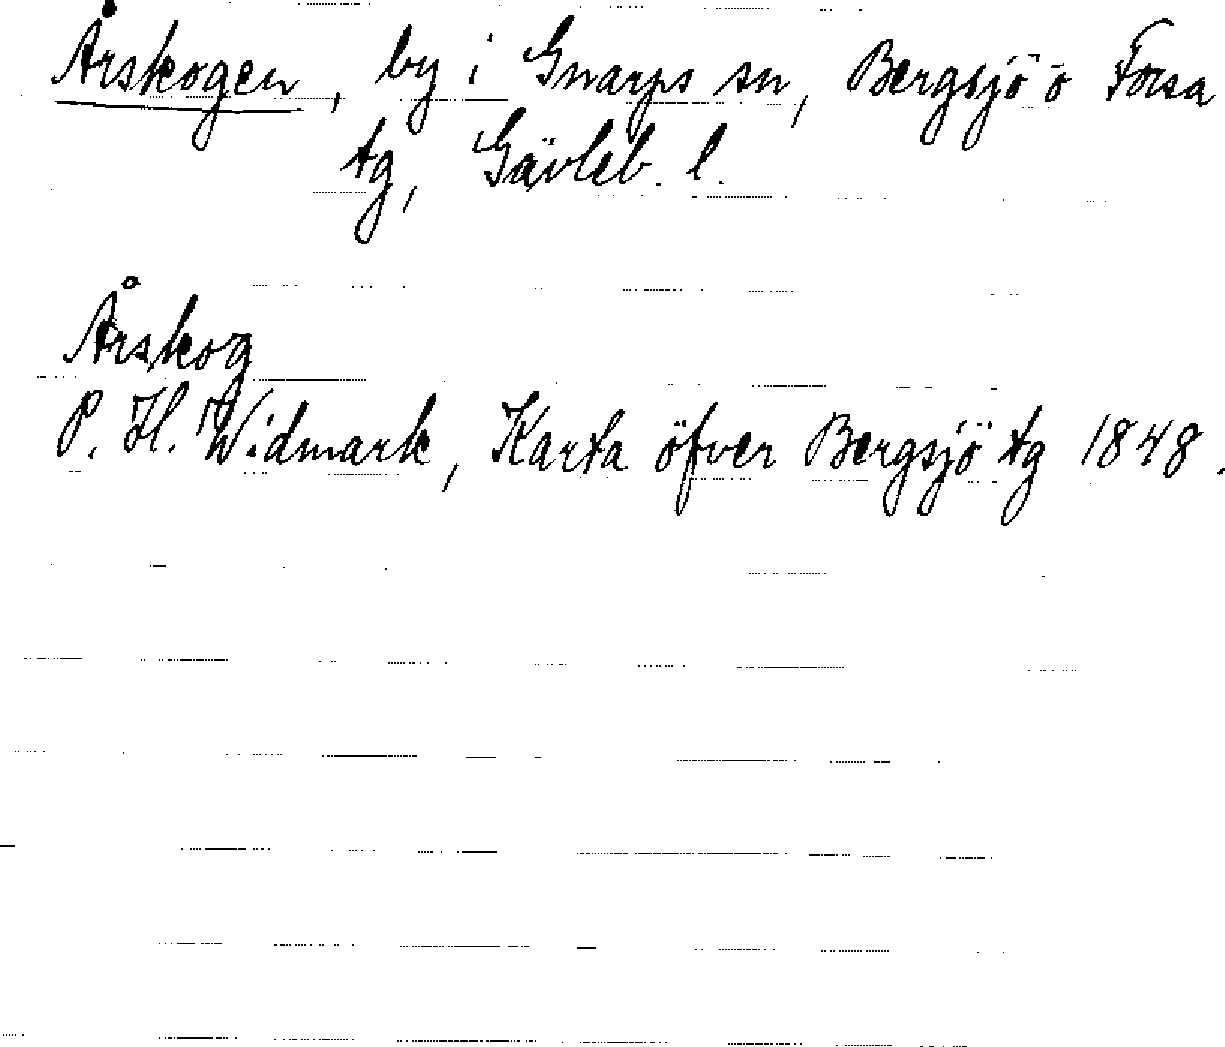 Årskogen, by i Gnarps sn, Bergsjö o Forsa
tg, Gävleb. l.
Årskog
P. H. Widmark, Karta öfver Bergsjö tg 1848.